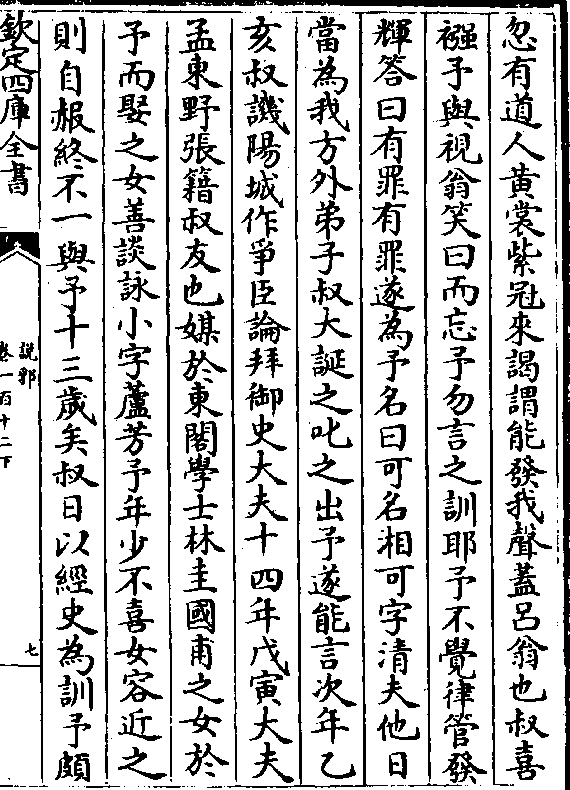 忽有道人黄裳紫冠來謁謂能發我聲蓋呂翁也叔喜
襁予與視翁笑曰而忘予勿言之訓耶予不覺律管發
輝答曰有罪有罪遂為予名曰可名湘可字清夫他日
當為我方外弟子叔大誕之叱之出予遂能言次年乙
亥叔譏陽城作爭臣論拜御史大夫十四年戊寅大夫
孟東野張籍叔友也媒於東閣學士林圭國甫之女於
予而娶之女善談詠小字蘆芳予年少不喜女容近之
則自赧終不一與予十三歲矣叔日以經史為訓予頗
欽定四庫全書
說郛
卷一百十二下
七